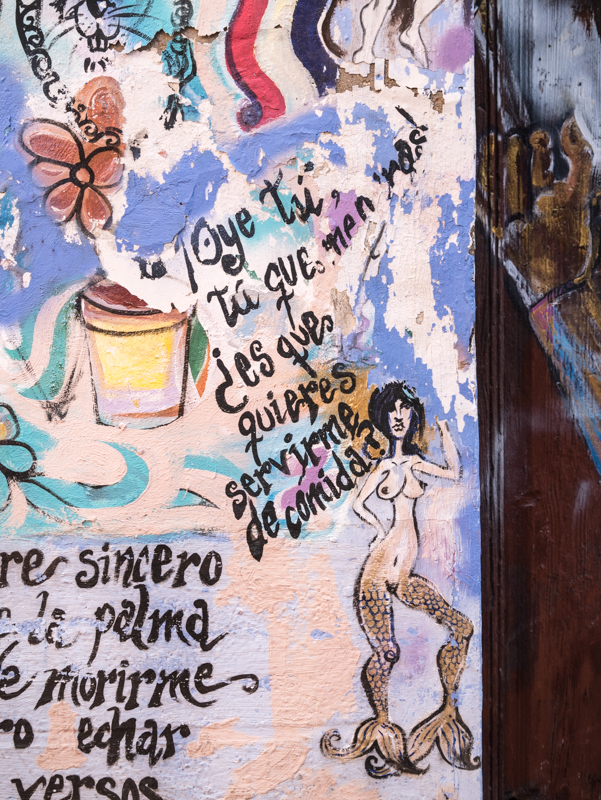 ¡Oye tú,
tú que
¿es que
quieres
servirme
de comida?
re sincero
la palma
morirme
ro echar
versos